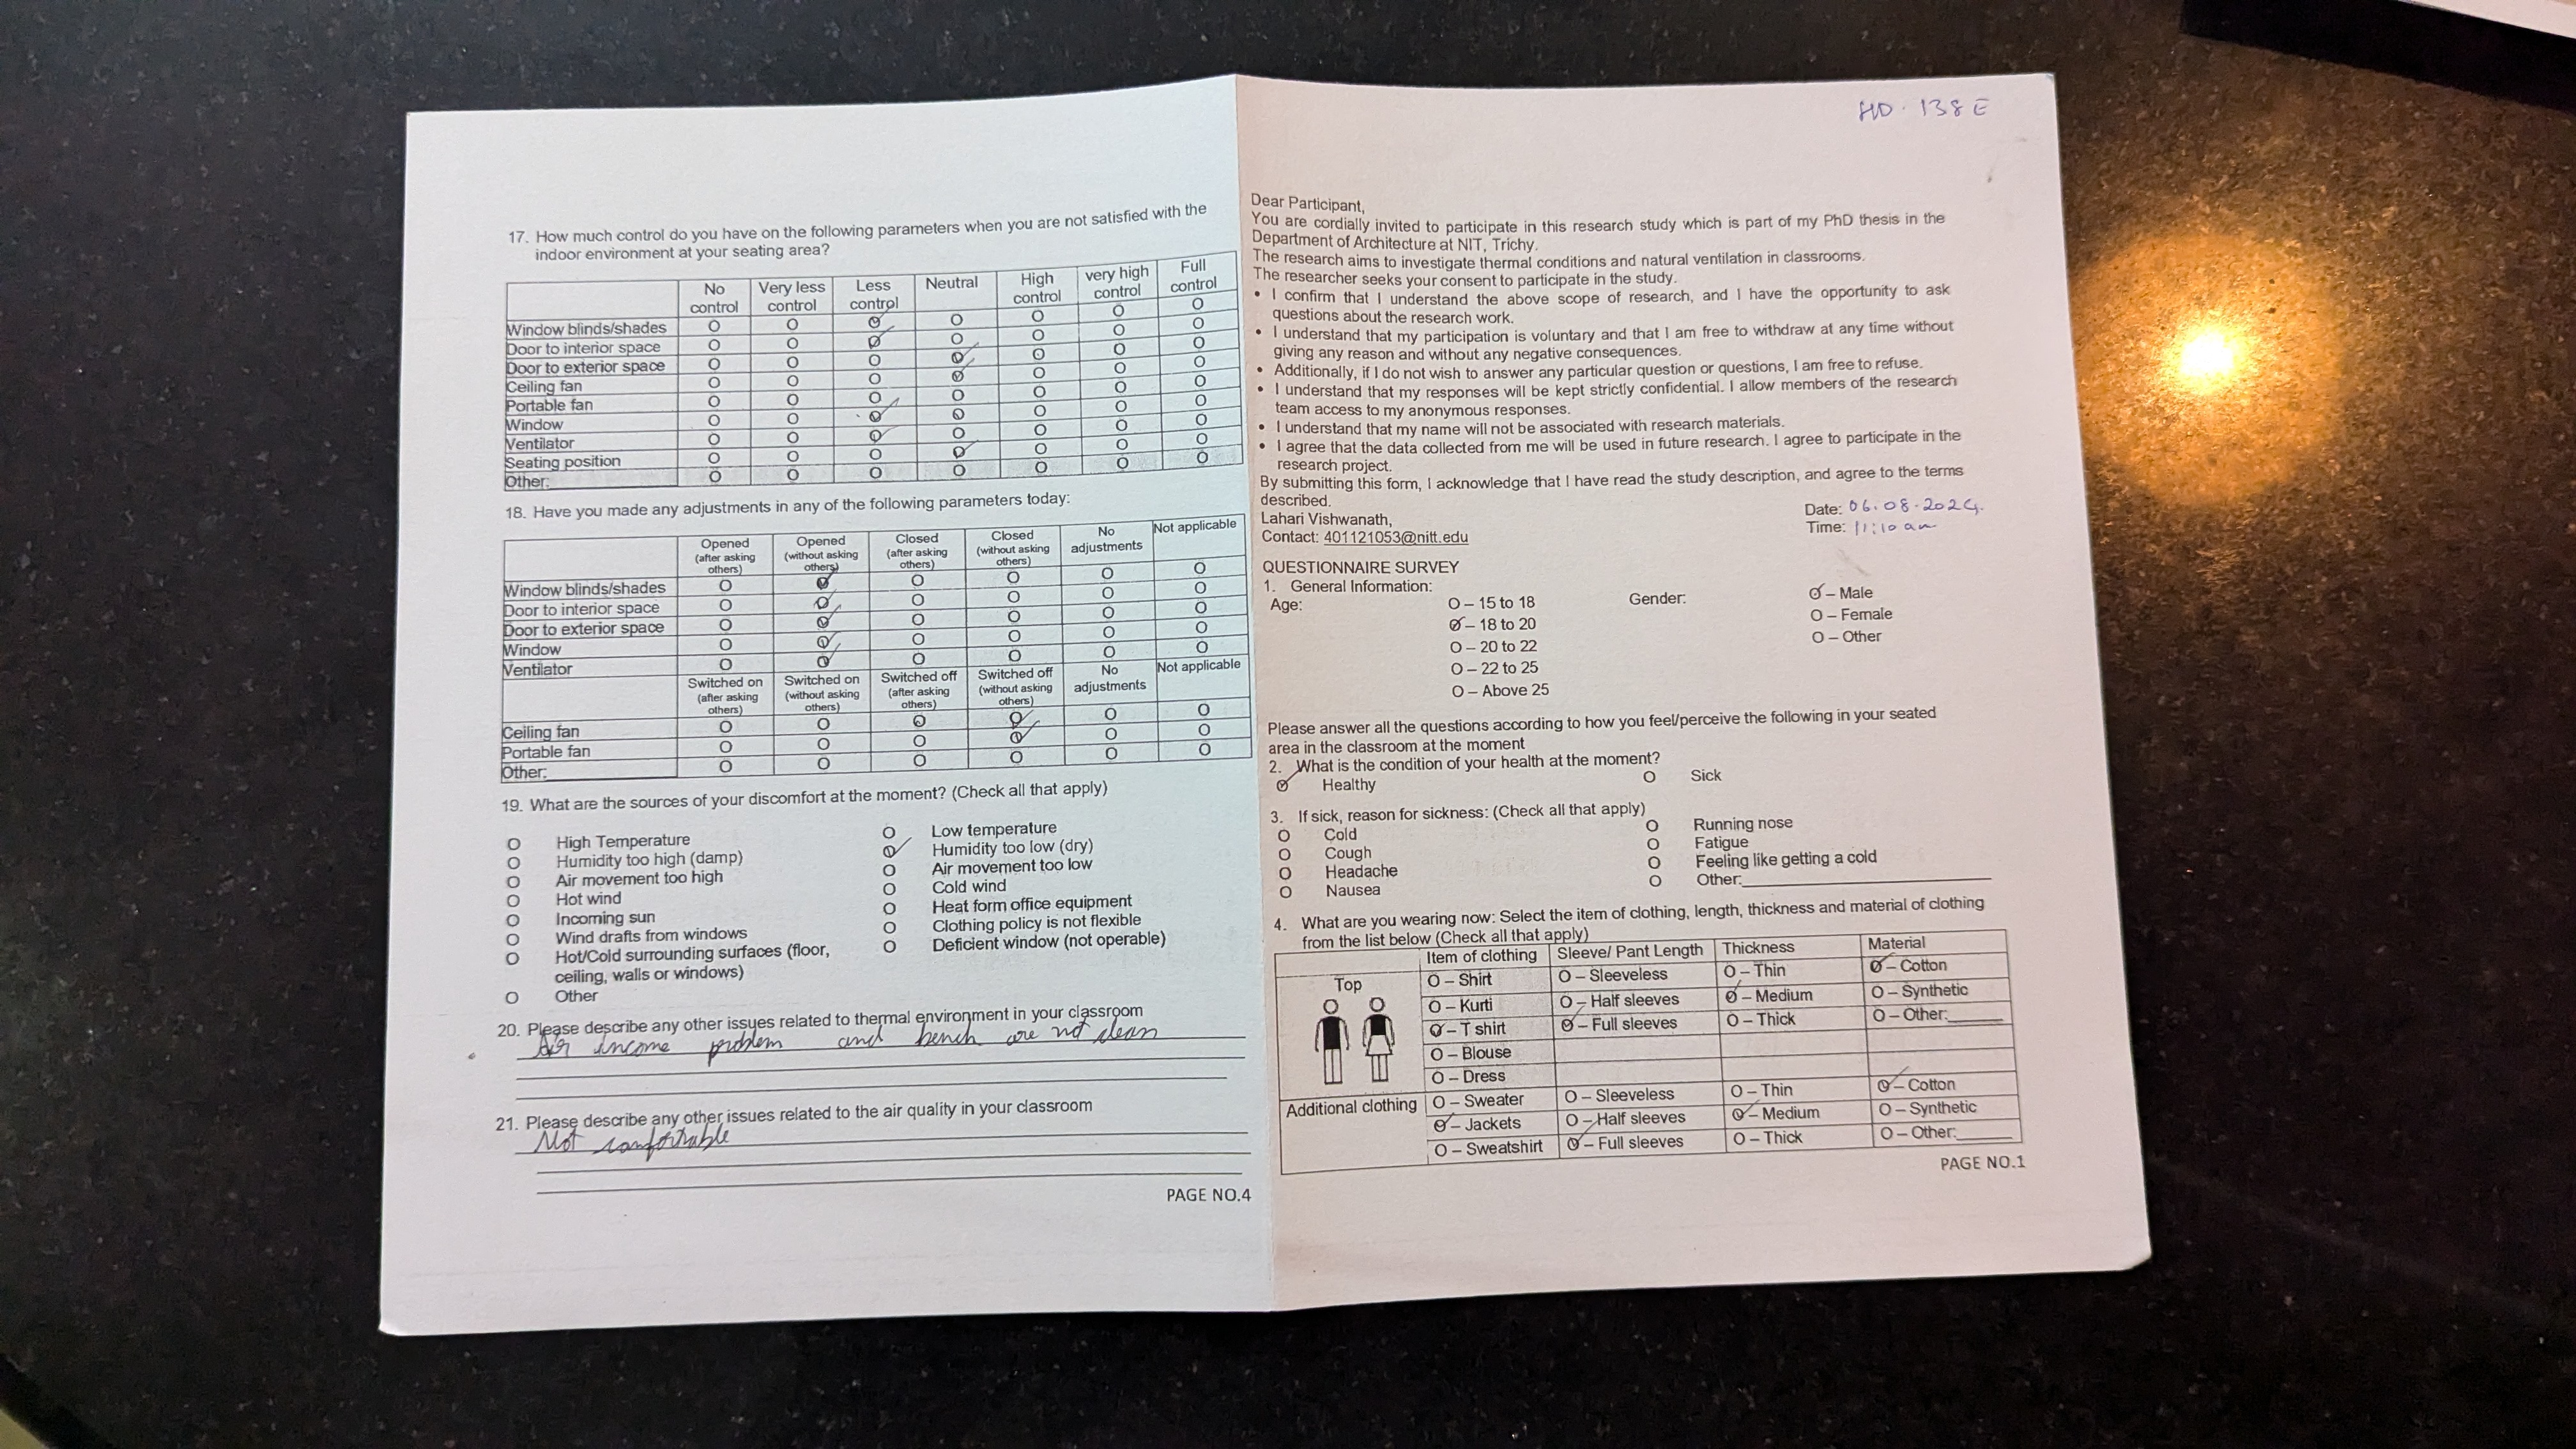 17. How much control do you have on the following parameters when you are not satisfied with the
indoor environment at your seating area?
No control | Very less control | Less control | Neutral | High control | very high control | Full control
Window blinds/shades O O O O O O O
Door to interior space O O O O O O O
Door to exterior space O O O O O O O
Ceiling fan O O O O O O O
Portable fan O O O O O O O
Window O O O O O O O
Ventilator O O O O O O O
Seating position O O O O O O O
Other: O O O O O O O
18. Have you made any adjustments in any of the following parameters today:
Opened (after asking others) | Opened (without asking others) | Closed (after asking others) | Closed (without asking others) | No adjustments | Not applicable
Window blinds/shades O O O O O O
Door to interior space O O O O O O
Door to exterior space O O O O O O
Window O O O O O O
Ventilator O O O O O O
Switched on (after asking others) | Switched on (without asking others) | Switched off (after asking others) | Switched off (without asking others) | No adjustments | Not applicable
Ceiling fan O O O O O O
Portable fan O O O O O O
Other: O O O O O O
19. What are the sources of your discomfort at the moment? (Check all that apply)
O High Temperature
O Humidity too high (damp)
O Air movement too high
O Hot wind
O Incoming sun
O Wind drafts from windows
O Hot/Cold surrounding surfaces (floor,
ceiling, walls or windows)
O Other
O Low temperature
O Humidity too low (dry)
O Air movement too low
O Cold wind
O Heat form office equipment
O Clothing policy is not flexible
O Deficient window (not operable)
20. Please describe any other issues related to thermal environment in your classroom
Air income problem and bench are not clean
21. Please describe any other issues related to the air quality in your classroom
Not comfortable
PAGE NO.4
HD. 138 E
Dear Participant,
You are cordially invited to participate in this research study which is part of my PhD thesis in the
Department of Architecture at NIT, Trichy.
The research aims to investigate thermal conditions and natural ventilation in classrooms.
The researcher seeks your consent to participate in the study.
• I confirm that I understand the above scope of research, and I have the opportunity to ask
questions about the research work.
• I understand that my participation is voluntary and that I am free to withdraw at any time without
giving any reason and without any negative consequences.
• Additionally, if I do not wish to answer any particular question or questions, I am free to refuse.
• I understand that my responses will be kept strictly confidential. I allow members of the research
team access to my anonymous responses.
• I understand that my name will not be associated with research materials.
• I agree that the data collected from me will be used in future research. I agree to participate in the
research project.
By submitting this form, I acknowledge that I have read the study description, and agree to the terms
described.
Lahari Vishwanath,
Contact: 401121053@nitt.edu
Date: 06.08.2024.
Time: 11:10 am
QUESTIONNAIRE SURVEY
1. General Information:
Age:
O – 15 to 18
O – 18 to 20
O – 20 to 22
O – 22 to 25
O – Above 25
Gender:
O – Male
O – Female
O – Other
Please answer all the questions according to how you feel/perceive the following in your seated
area in the classroom at the moment
2. What is the condition of your health at the moment?
O Healthy O Sick
3. If sick, reason for sickness: (Check all that apply)
O Cold O Running nose
O Cough O Fatigue
O Headache O Feeling like getting a cold
O Nausea O Other:
4. What are you wearing now: Select the item of clothing, length, thickness and material of clothing
from the list below (Check all that apply)
Item of clothing | Sleeve/ Pant Length | Thickness | Material
Top
O – Shirt O – Sleeveless O – Thin O – Cotton
O – Kurti O – Half sleeves O – Medium O – Synthetic
O – T shirt O – Full sleeves O – Thick O – Other:
O – Blouse
O – Dress
Additional clothing
O – Sweater O – Sleeveless O – Thin O – Cotton
O – Jackets O – Half sleeves O – Medium O – Synthetic
O – Sweatshirt O – Full sleeves O – Thick O – Other:
PAGE NO.1